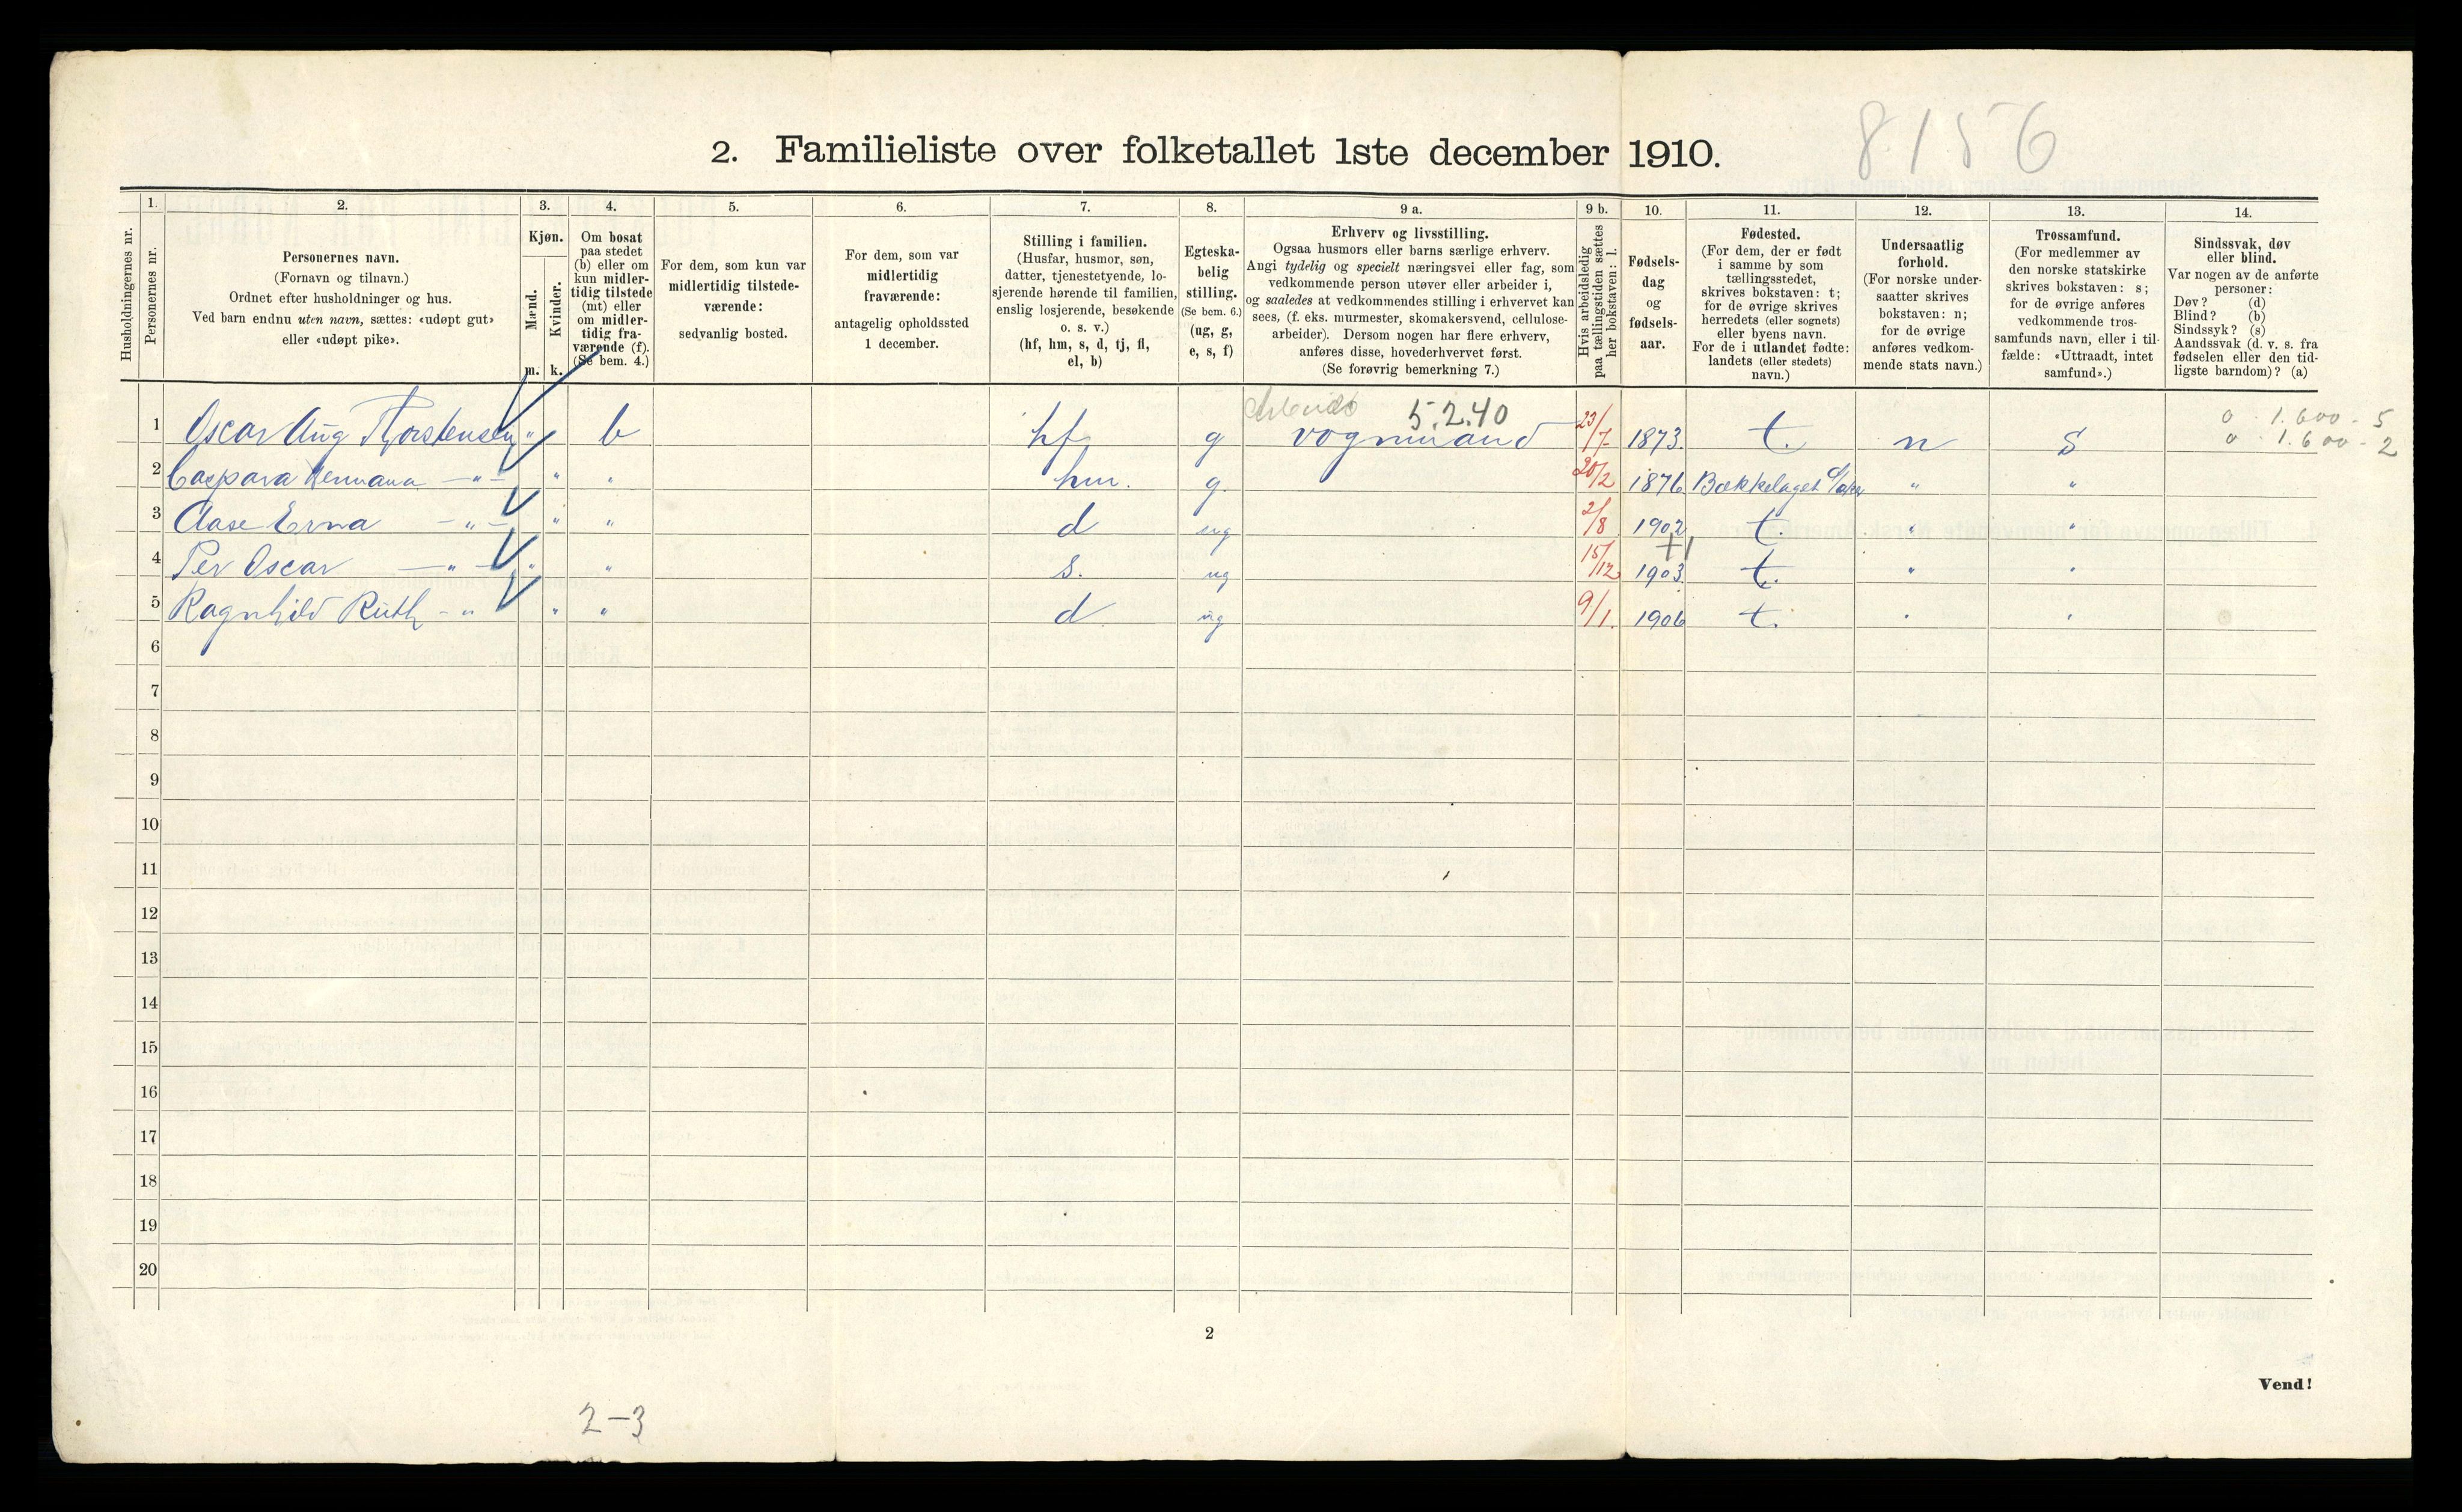 8156
2. Familieliste over folketallet 1ste december 1910.
Husholdningernes nr.
1. Personernes nr.
2. Personernes navn.
(Fornavn og tilnavn.)
Ordnet efter husholdninger og hus.
Ved barn endnu uten navn, sættes: «udøpt gut»
eller «udøpt pike».
3. Kjøn.
Mænd. m.
Kvinder. k.
4. Om bosat
paa stedet
(b) eller om
kun midler-
tidig tilstede
(mt) eller
om midler-
tidig fra-
værende (f).
(Se bem. 4.)
5. For dem, som kun var
midlertidig tilstede-
værende:
sedvanlig bosted.
6. For dem, som var
midlertidig
fraværende:
antagelig opholdssted
1 december.
7. Stilling i familien.
(Husfar, husmor, søn,
datter, tjenestetyende, lo-
sjerende hørende til familien,
enslig losjerende, besøkende
o. s. v.)
(hf, hm, s, d, tj, fl,
el, b)
8. Egteska-
belig
stilling.
(Se bem. 6.)
(ug, g,
e, s, f)
9 a. Erhverv og livsstilling.
Ogsaa husmors eller barns særlige erhverv.
Angi tydelig og specielt næringsvei eller fag, som
vedkommende person utøver eller arbeider i,
og saaledes at vedkommendes stilling i erhvervet kan
sees, (f. eks. murmester, skomakersvend, cellulose-
arbeider). Dersom nogen har flere erhverv,
anføres disse, hovederhvervet først.
(Se forøvrig bemerkning 7.)
9 b. Hvis arbeidsledig
paa tællingstiden sættes
her bokstaven: l.
10. Fødsels-
dag
og
fødsels-
aar.
11. Fødested.
(For dem, der er født
i samme by som
tællingsstedet,
skrives bokstaven: t;
for de øvrige skrives
herredets (eller sognets)
eller byens navn.
For de i utlandet fødte:
landets (eller stedets)
navn.)
12. Undersaatlig
forhold.
(For norske under-
saatter skrives
bokstaven: n;
for de øvrige
anføres vedkom-
mende stats navn.)
13. Trossamfund.
(For medlemmer av
den norske statskirke
skrives bokstaven: s;
for de øvrige anføres
vedkommende tros-
samfunds navn, eller i til-
fælde: «Uttraadt, intet
samfund».)
14. Sindssvak, døv
eller blind.
Var nogen av de anførte
personer:
Døv? (d)
Blind? (b)
Sindssyk? (s)
Aandssvak (d. v. s. fra
fødselen eller den tid-
ligste barndom)? (a)
5.2.40
0 - 1.600 - 5
0 - 1.600 - 2
1 Oscar Aug Thorstensen " b hf g vognmand 23/7 1873. t. n s
2 Caspara Hermana — " — " " hm. g. 20/2 1876 Bækkelaget " "
3 Aase Erna — " — " " d ug 2/8 1902 t. " "
4 Per Oscar — " — " " s. ug 15/12 1903. t. " "
5 Ragnhild Ruth - " " " d ug 9/1. 1906 t. " "
6
7
8
9
10
11
12
13
14
15
16
17
18
19
20
2
Vend!
2-3